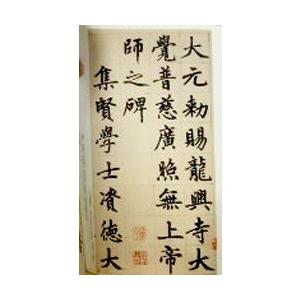 大元勅賜龍興寺大
覺普慈廣照無上帝
師之碑
集賢學士資德大